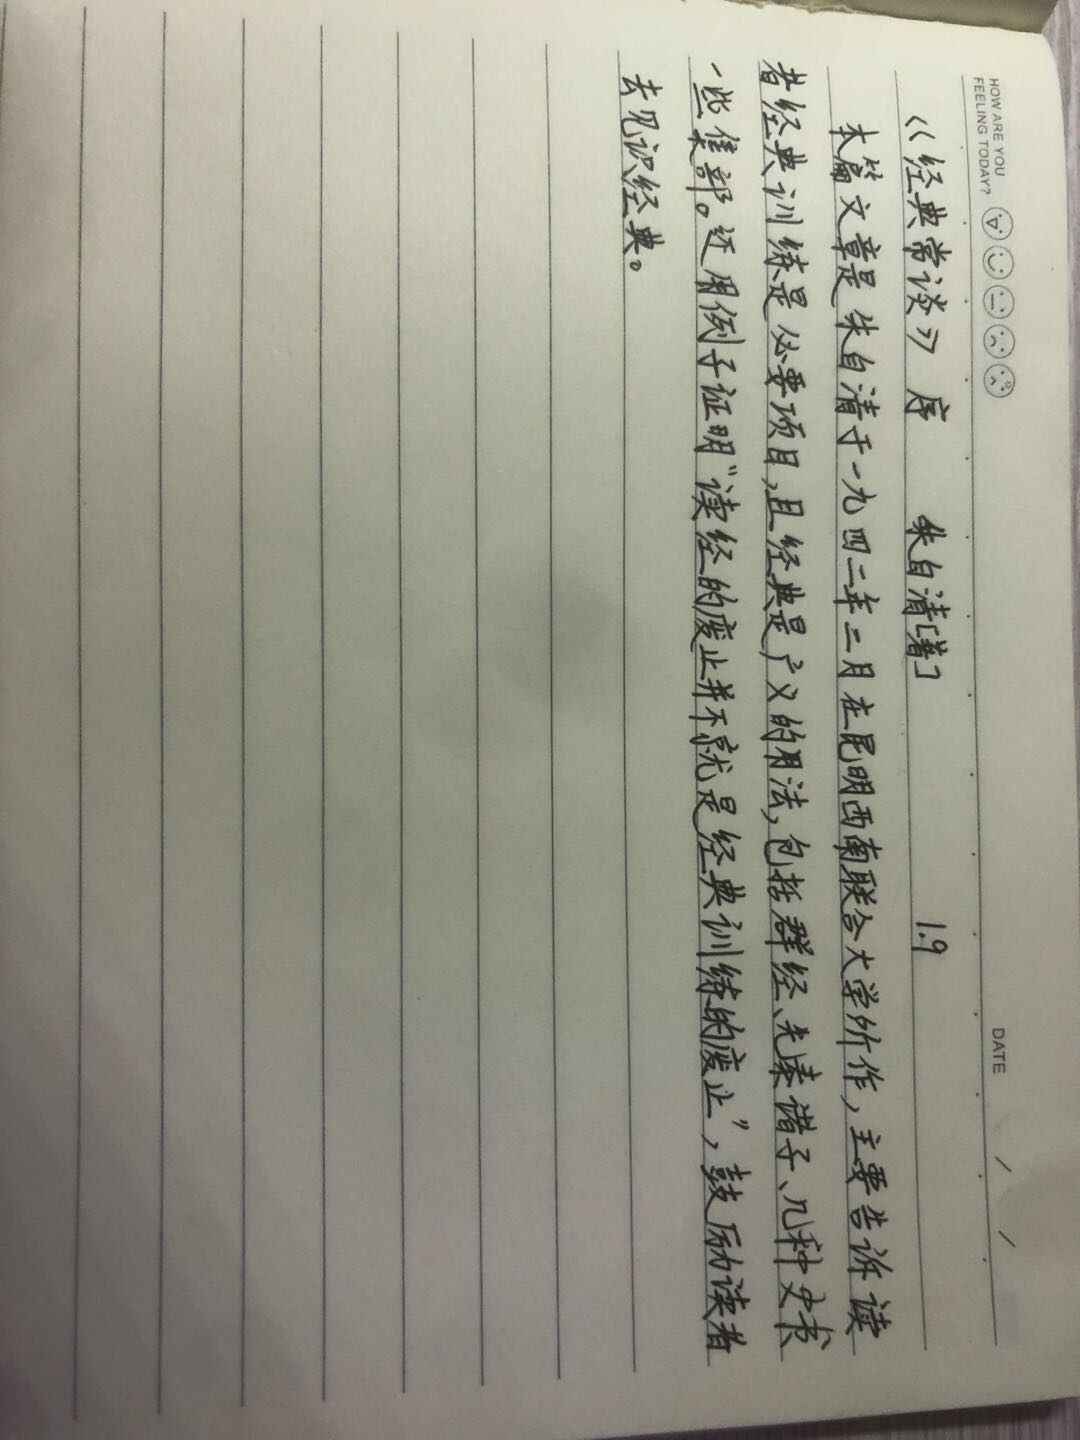 HOW ARE YOU
FEELING TODAY?
DATE / /
《经典常谈》 序 朱自清[著] 1.9
本篇文章是朱自清于一九四二年二月在昆明西南联合大学所作，主要告诉读
者经典训练是必要项目，且经典是广义的用法，包括群经、先秦诸子、几种史书
一些集部。还用例子证明“读经的废止并不就是经典训练的废止”，鼓励读者
去见识经典。